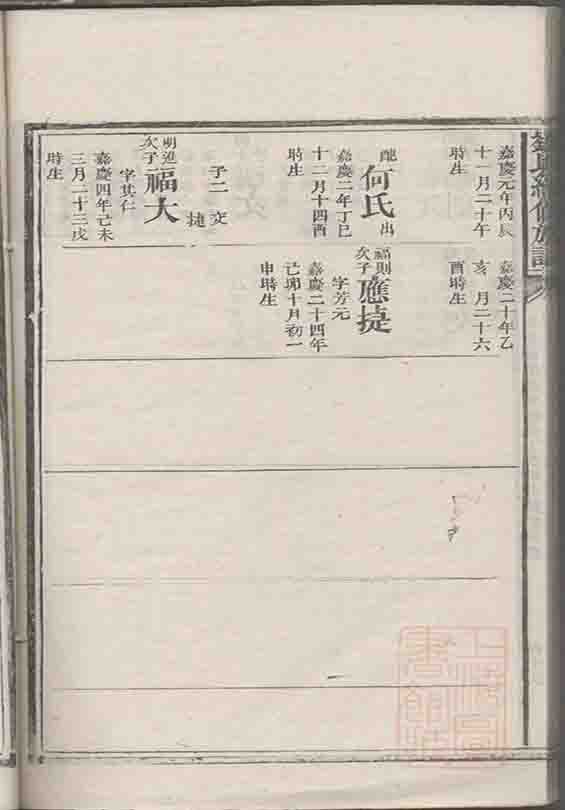 嘉慶元年丙辰
十一月二十午
時生
配何氏出
嘉慶二年丁巳
十二月十四酉
時生
子二交
捷
明進
次子福大
字其仁
嘉慶四年己未
三月二十三戌
時生
嘉慶二十年乙
亥 月二十六
酉時生
福則
次子應捷
字芳元
嘉慶二十四年
己卯十月初一
申時生